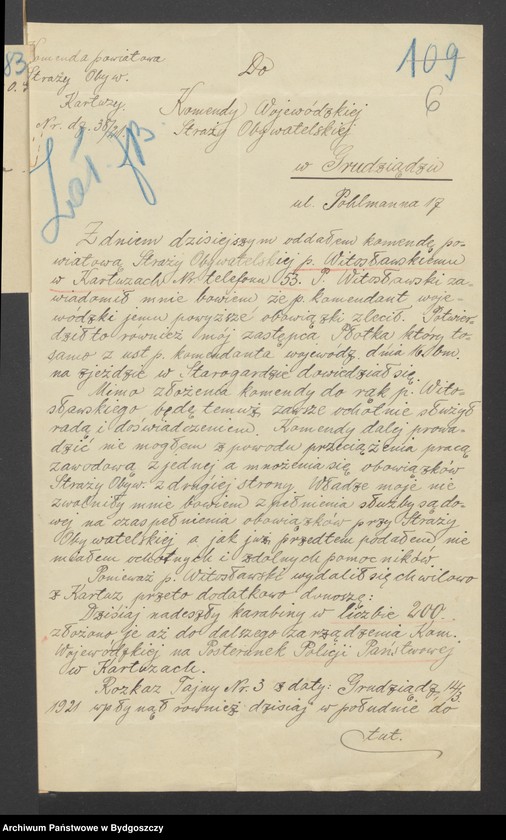 83
0.
Komenda powiatowa
Straży Obyw.
Kartuzy.
Nr. dz. 38/21
109
6
Do
Komendy Wojewódzkiej
Straży Obywatelskiej
w Grudziądzu
ul. Pohlmanna 17
Z dniem dzisiejszym oddałem komendę po-
wiatową Straży Obywatelskiej p. Witosławskiemu
w Kartuzach Nr. telefonu 53. P. Witosławski za-
wiadomił mnie bowiem że p. komendant woje-
wódzki jemu powyższe obowiązki zlecił. Potwier-
dził to również mój zastępca Płotka który to-
samo z ust p. komendanta wojewodz. dnia 16. bm.
na zjeździe w Starogardzie dowiedział się.
Mimo złożenia komendy do rąk p. Wito-
sławskiego będę temuż zawsze ochotnie służył
radą i doświadczeniem. Komendy dalej prowa-
dzić nie mogłem z powodu przeciążenia pracą
zawodową z jednej a mnożenia się obowiązków
Straży Obyw. z drugiej strony. Władze moje nie
zwolniły mnie bowiem z pełnienia służby sądo-
wej na czas pełnienia obowiązków przy Straży
Obywatelskiej a jak już przedtem podałem nie
miałem ochotnych i zdolnych pomocników.
Ponieważ p. Witosławski wydalił się chwilowo
z Kartuz przeto dodatkowo donoszę:
Dzisiaj nadeszły karabiny w liczbie 200
złożono je aż do dalszego zarządzenia Kom.
Wojewódzkiej na Posterunek Policji Państwowej
w Kartuzach.
Rozkaz Tajny Nr. 3 z daty: Grudziądz, 14/3.
1921 wpłynął również dzisiaj w południe do
tut.
Archiwum Państwowe w Bydgoszczy